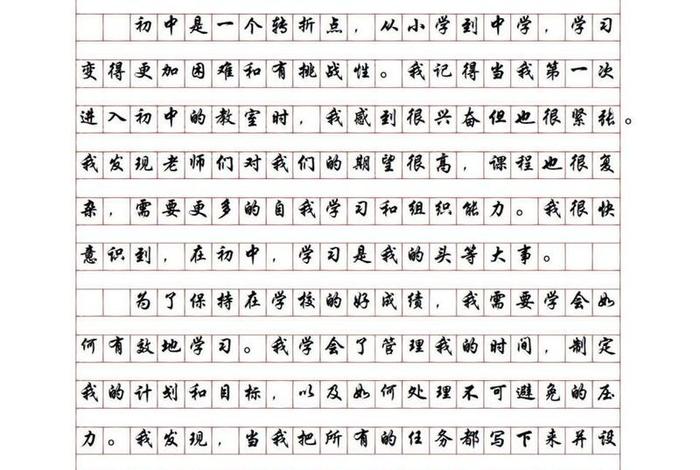 初中是一个转折点，从小学到中学，学习
变得更加困难和有挑战性。我记得当我第一次
进入初中的教室时，我感到很兴奋但也很紧张。
我发现老师们对我们的期望很高，课程也很复
杂，需要更多的自我学习和组织能力。我很快
意识到，在初中，学习是我的头等大事。
为了保持在学校的好成绩，我需要学会如
何有效地学习。我学会了管理我的时间，制定
我的计划和目标，以及如何处理不可避免的压
力。我发现，当我把所有的任务都写下来并设